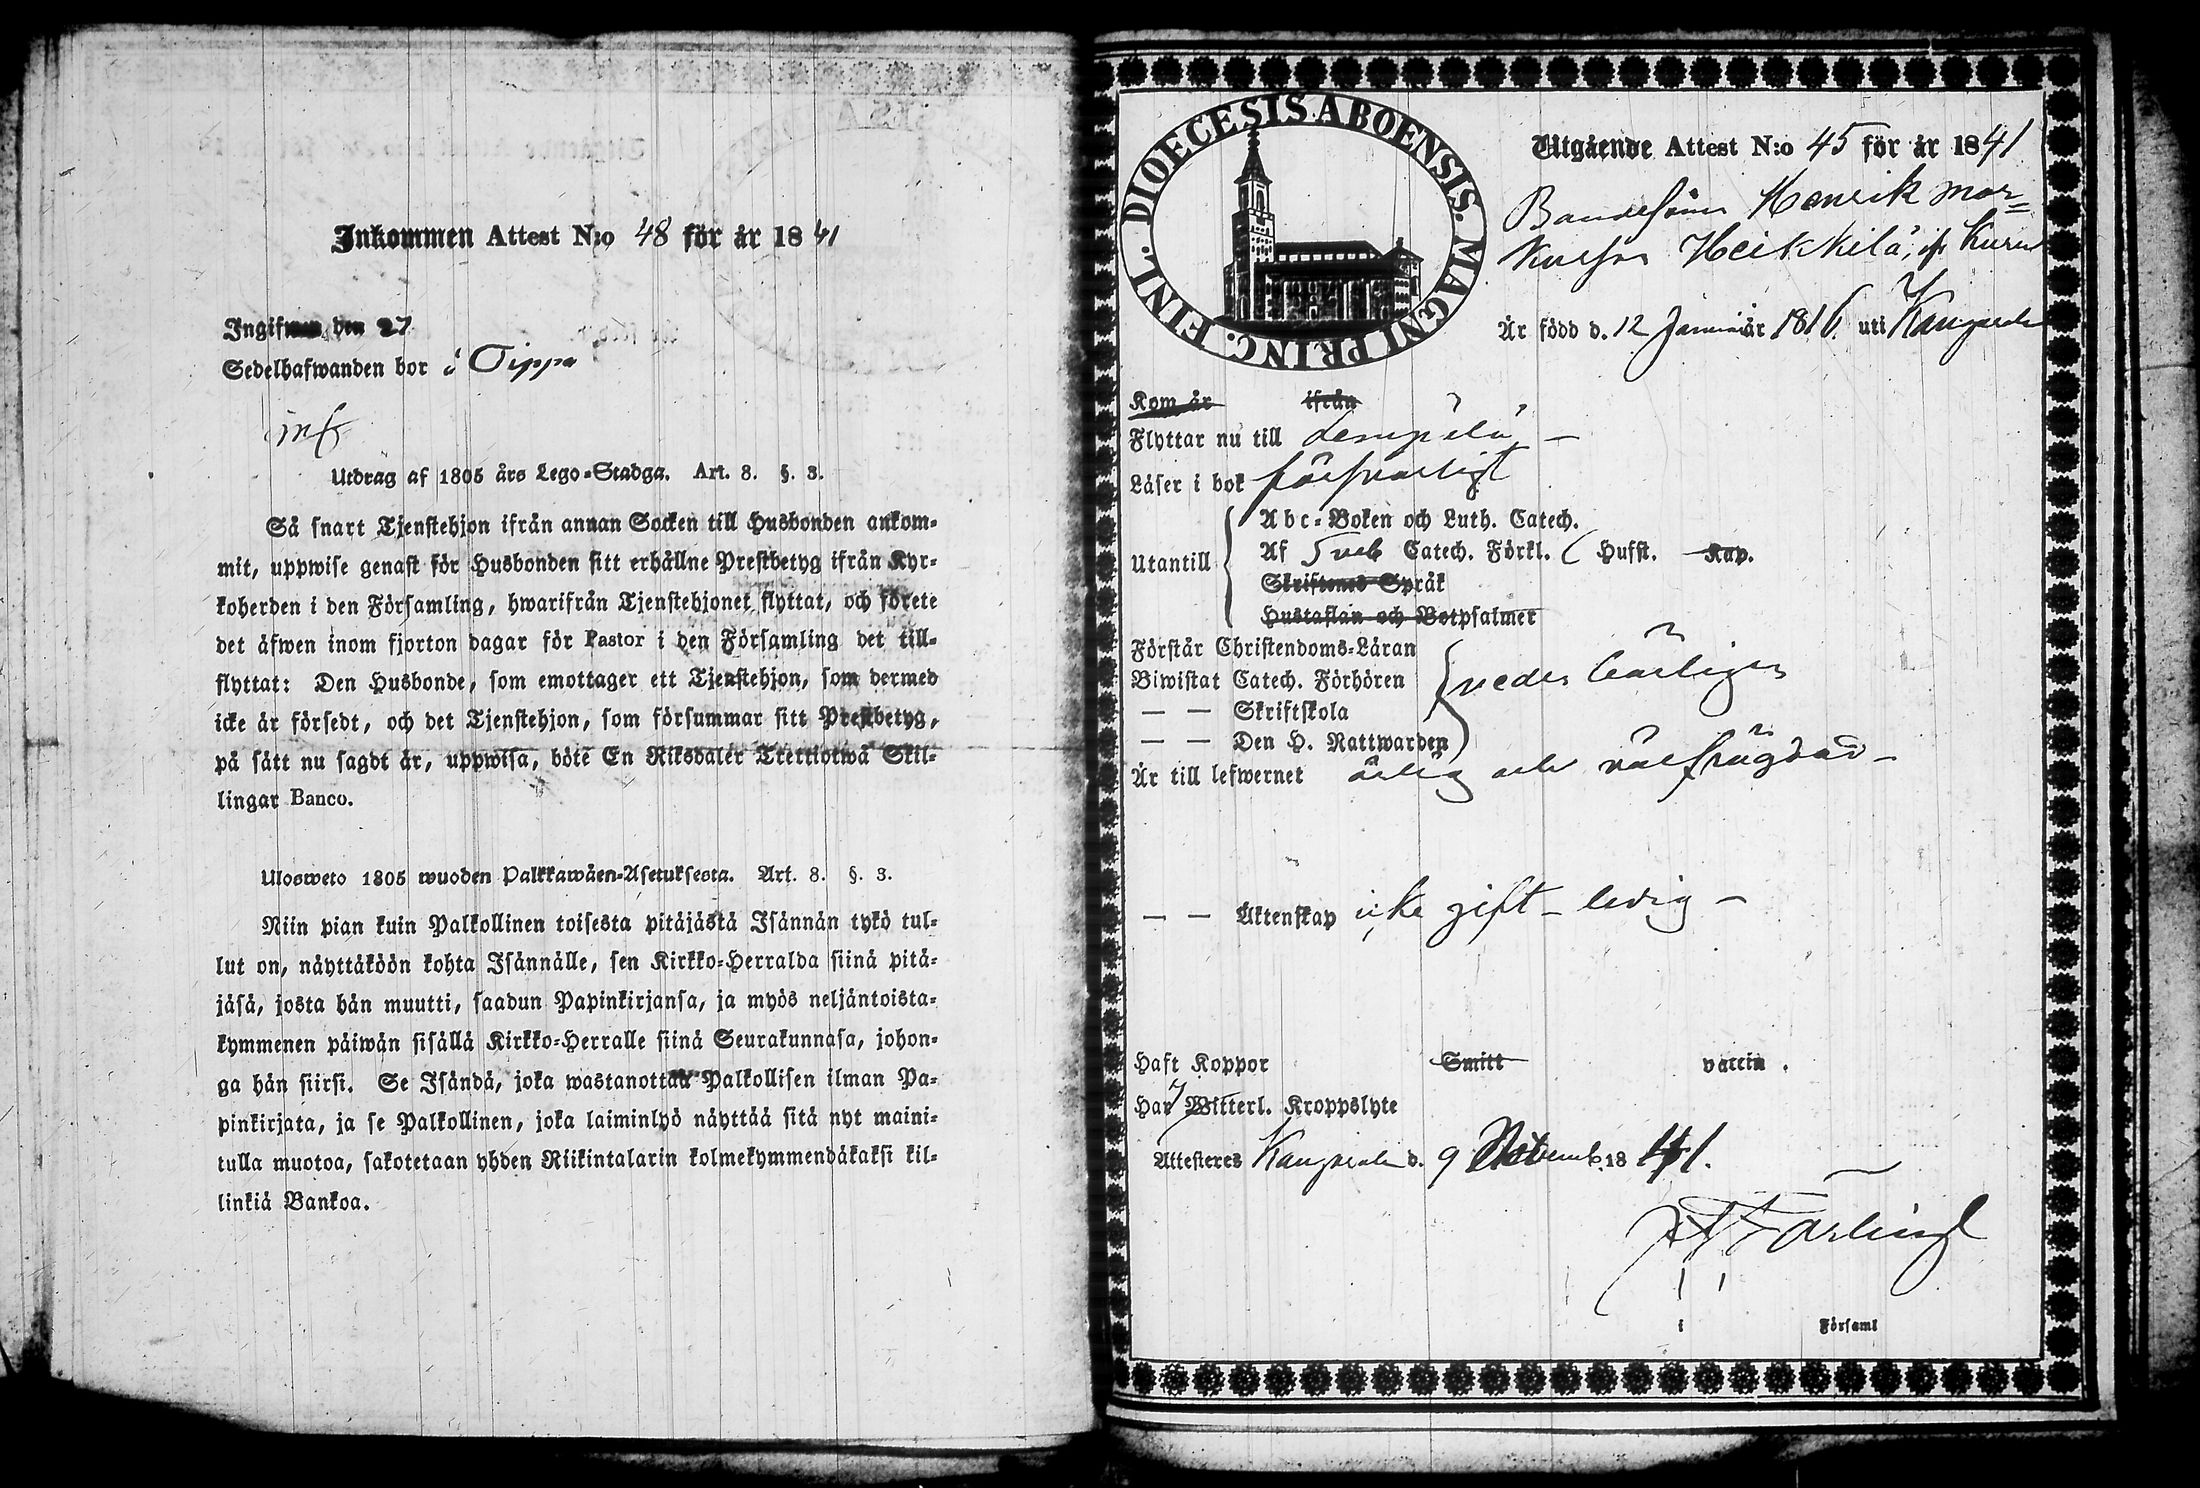 Inkommen Attest N:o 48 för år 1841
Ingifwen den 27
Sedelhafwanden bor i Sippa
Utdrag af 1805 års Lego-Stadga. Art. 8. §. 3.
Så snart Tjenstehjon ifrån annan Socken till Husbonden ankom-
mit, uppwise genast för Husbonden sitt erhållne Prestbetyg ifrån Kyr-
koherden i den Församling, hwarifrån Tjenstehjonet flyttat, och förete
det äfwen inom fjorton dagar för Pastor i den Församling det till-
flyttat: Den Husbonde, som emottager ett Tjenstehjon, som dermed
icke är försedt, och det Tjenstehjon, som försummar sitt Prestbetyg,
på sätt nu sagdt är, uppwisa, böte En Riksdaler Trettiotwå Skil-
lingar Banco.
Ulosweto 1805 wuoden Palkkawäen-Asetuksesta. Art. 8. §. 3.
Niin pian kuin Palkollinen toisesta pitäjästä Isännän tykö tul-
lut on, näyttäköön kohta Isännälle, sen Kirkko-Herralda siinä pitä-
jäsä, josta hän muutti, saadun Papinkirjansa, ja myös neljäntoista-
kymmenen päiwän sisällä Kirkko-Herralle siinä Seurakunnasa, johon-
ga hän siirsi. Se Isändä, joka wastanottaa Palkollisen ilman Pa-
pinkirjata, ja se Palkollinen, joka laiminlyö näyttää sitä nyt maini-
tulla muotoa, sakotetaan yhden Riikintalarin kolmekymmendäkaksi kil-
linkiä Bankoa.
DIOECESIS ABOENSIS. MAGNI PRINC. FINL.
Utgående Attest N:o 45 för år 1841
Bondesonen Henrik Mar-
kusson Heikkilä, ifr Kuru
Är född d. 12 Januari år 1816 uti Kangasala
Kom år ifrån
Flyttar nu till Lempälä
Läser i bok försvarligt
Utantill
Abc-Boken och Luth. Catech.
Af Sveb Catech. Förkl. ( Husst. Kap.
Skriftenes Språk
Hustaflan och Botpsalmer
Förstår Christendoms-Läran
Biwistat Catech. Förhören vederbörligen
— — Skriftskola
— — Den H. Nattwarden
Är till lefwernet ärlig och välfrägdad —
— — Äktenskap icke gift — ledig —
Haft Koppor Smitt vaccin.
Har Witterl. Kroppslyte
Attesteres Kangasala d. 9 Novemb. 1841.
i Församl